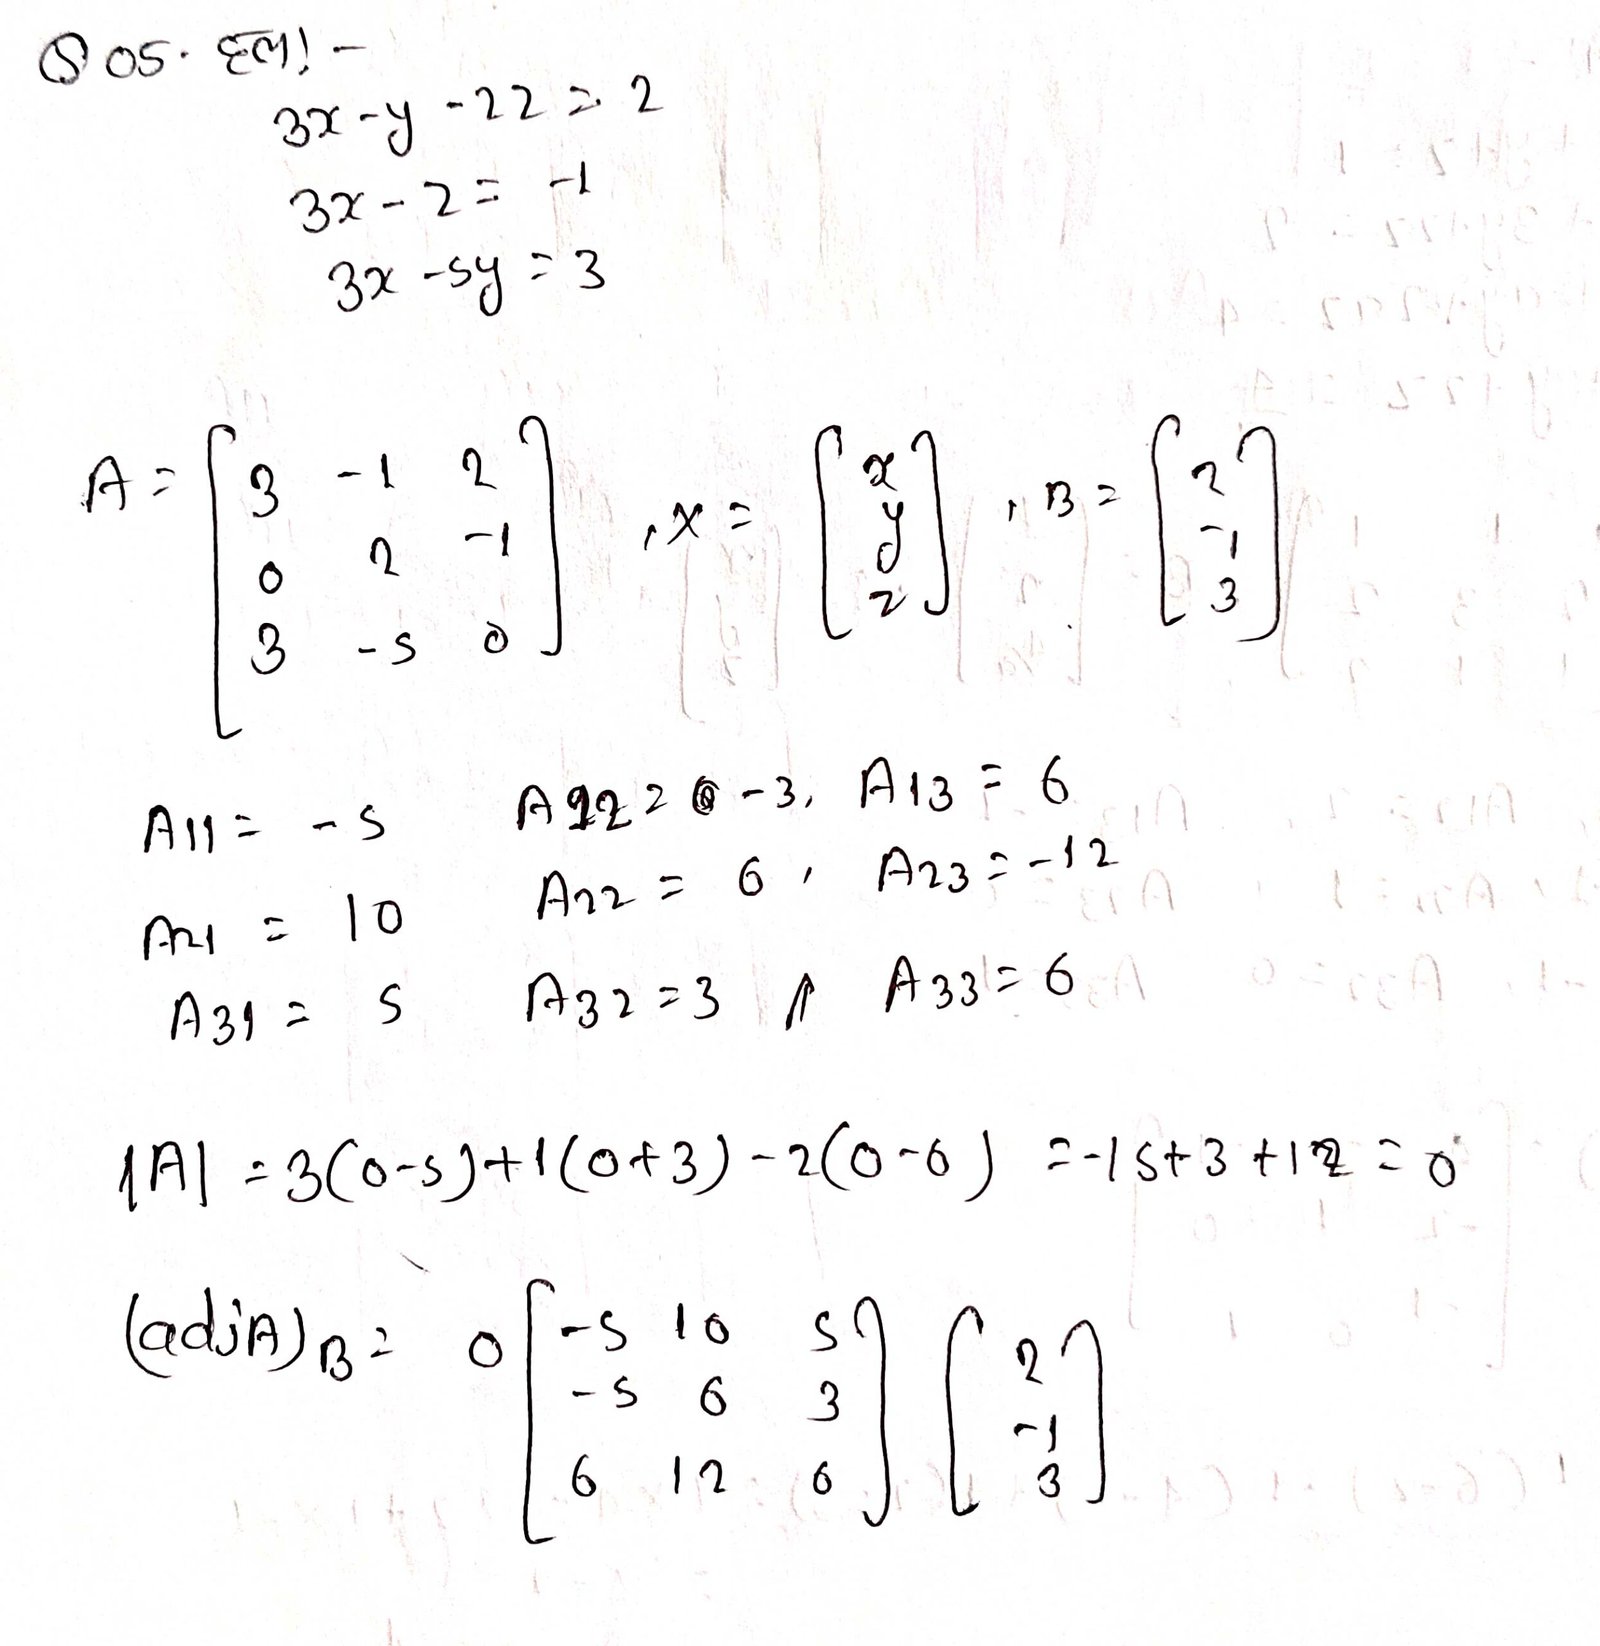 Q 05. हल! -
3x - y - 2z = 2
3x - z = -1
3x - 5y = 3
A = [ 3 -1 2
0 2 -1
3 -5 0 ] , X = [ x y z ] , B = [ 2 -1 3 ]
A11 = -5 A12 = -3, A13 = 6
A21 = 10 A22 = 6 , A23 = -12
A31 = 5 A32 = 3 , A33 = 6
|A| = 3(0-5)+1(0+3)-2(0-6) = -15+3+12 = 0
(adjA)B = 0 [ -5 10 5
-5 6 3
6 12 6 ] [ 2 -1 3 ]